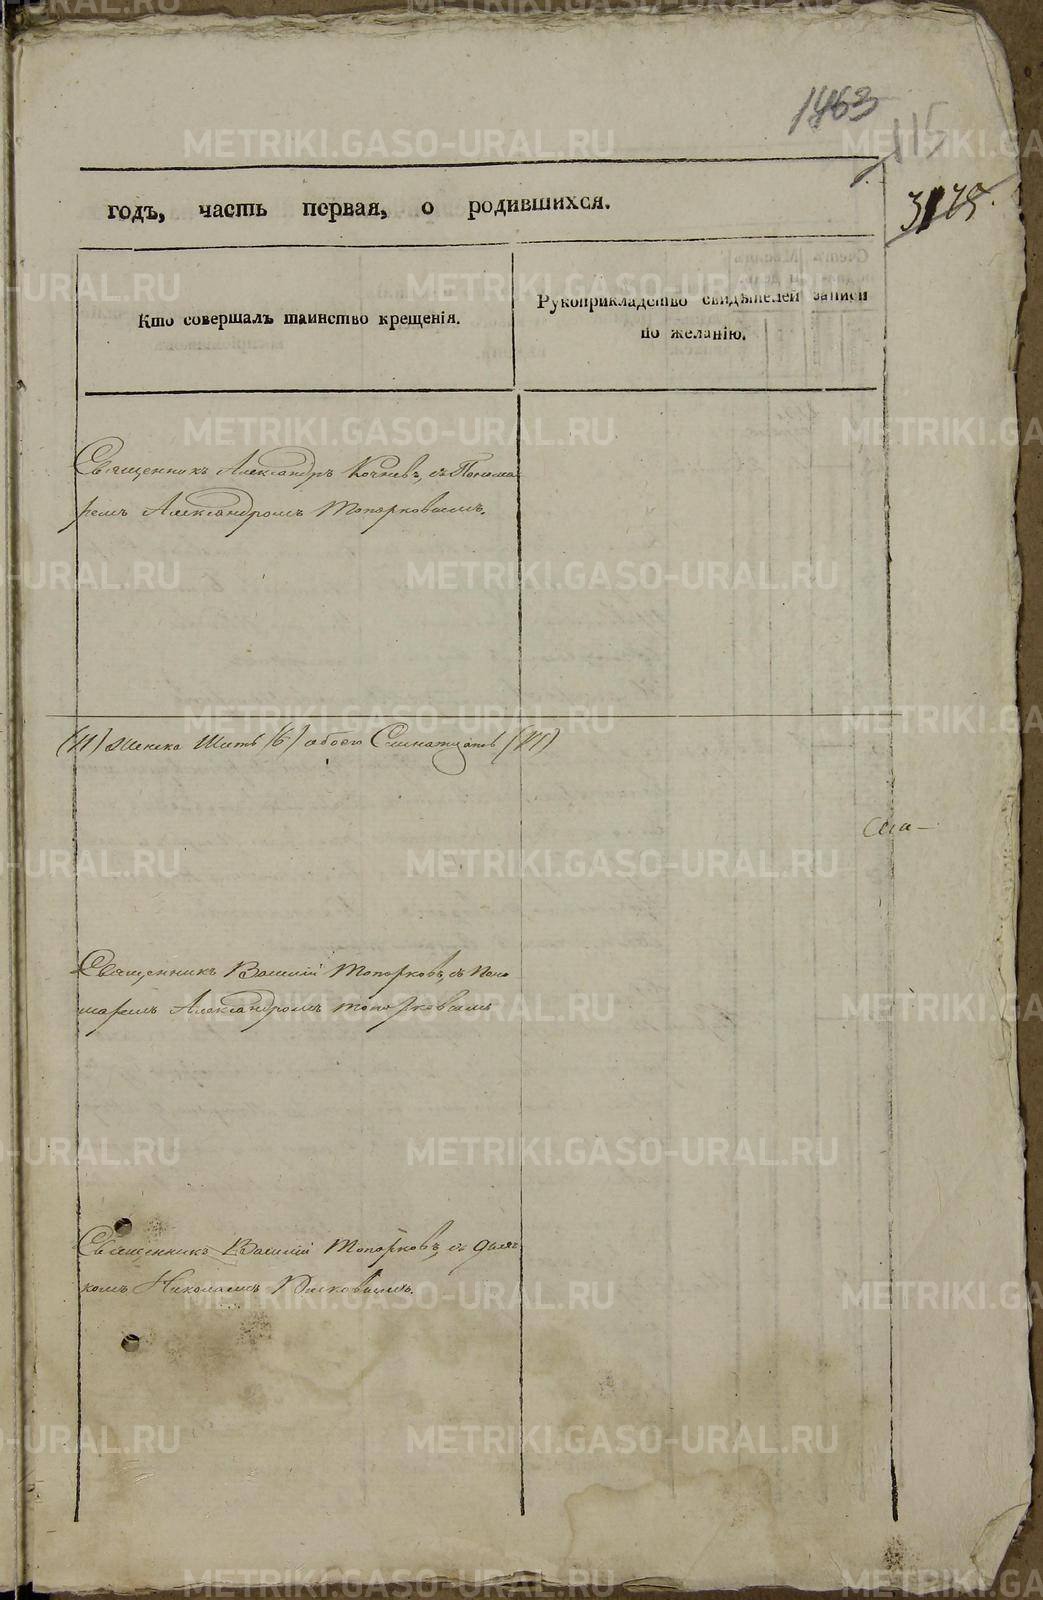 1463
115
годъ, часть первая, о родившихся.
Кто совершалъ таинство крещенія.
Рукоприкладство свидѣтелей записи
по желанію.
Священникъ Александръ Кочневъ, съ Понома
ремъ Александромъ Топорковымъ.
(11) женска Шесть (6) обоего Семнатцать (17)
Священникъ Василій Топорковъ, съ Поно
маремъ Александромъ Топорковымъ
Священникъ Василій Топорковъ, съ дьяч
комъ Николаемъ
METRIKI.GASO-URAL.RU